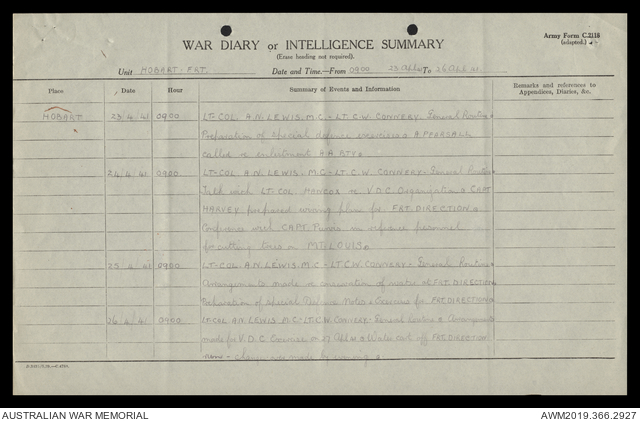 Army Form C.2118
(adapted.)
WAR DIARY or INTELLIGENCE SUMMARY
(Erase heading not required).
Unit HOBART F&T. Date and Time—From 0900 23 Apl 41 To 26 Apl 41.
Place Date Hour Summary of Events and Information Remarks and references to Appendices, Diaries, &c.
HOBART 23.4.41 0900 LT-COL. A.N. LEWIS. M.C. - LT. C.W. CONNERY. General Routine
Preparation of special defence exercises. A. PEARSALL
called re enlistment A.A. BTY.
24.4.41 0900. LT-COL. A.N. LEWIS. M.C. - LT. C.W. CONNERY. General Routine
Talk with LT. COL. re V.D.C. Organization. CAPT
HARVEY prepared wiring plans for DIRECTION.
Conference with CAPT. re personnel
for cutting trees on MT. LOUIS.
25.4.41 0900 LT-COL. A.N. LEWIS. M.C. - LT. C.W. CONNERY. General Routine
Arrangements made re conservation of water at F&T. DIRECTION
Preparation of special Defence Notes & Exercises for F&T. DIRECTION.
26.4.41 0900. LT-COL. A.N. LEWIS. M.C. - LT. C.W. CONNERY. General Routine. Arrangements
made for V.D.C. Exercise on 27 Apl 41. Water cart off F&T. DIRECTION
made
AUSTRALIAN WAR MEMORIAL AWM2019.366.2927